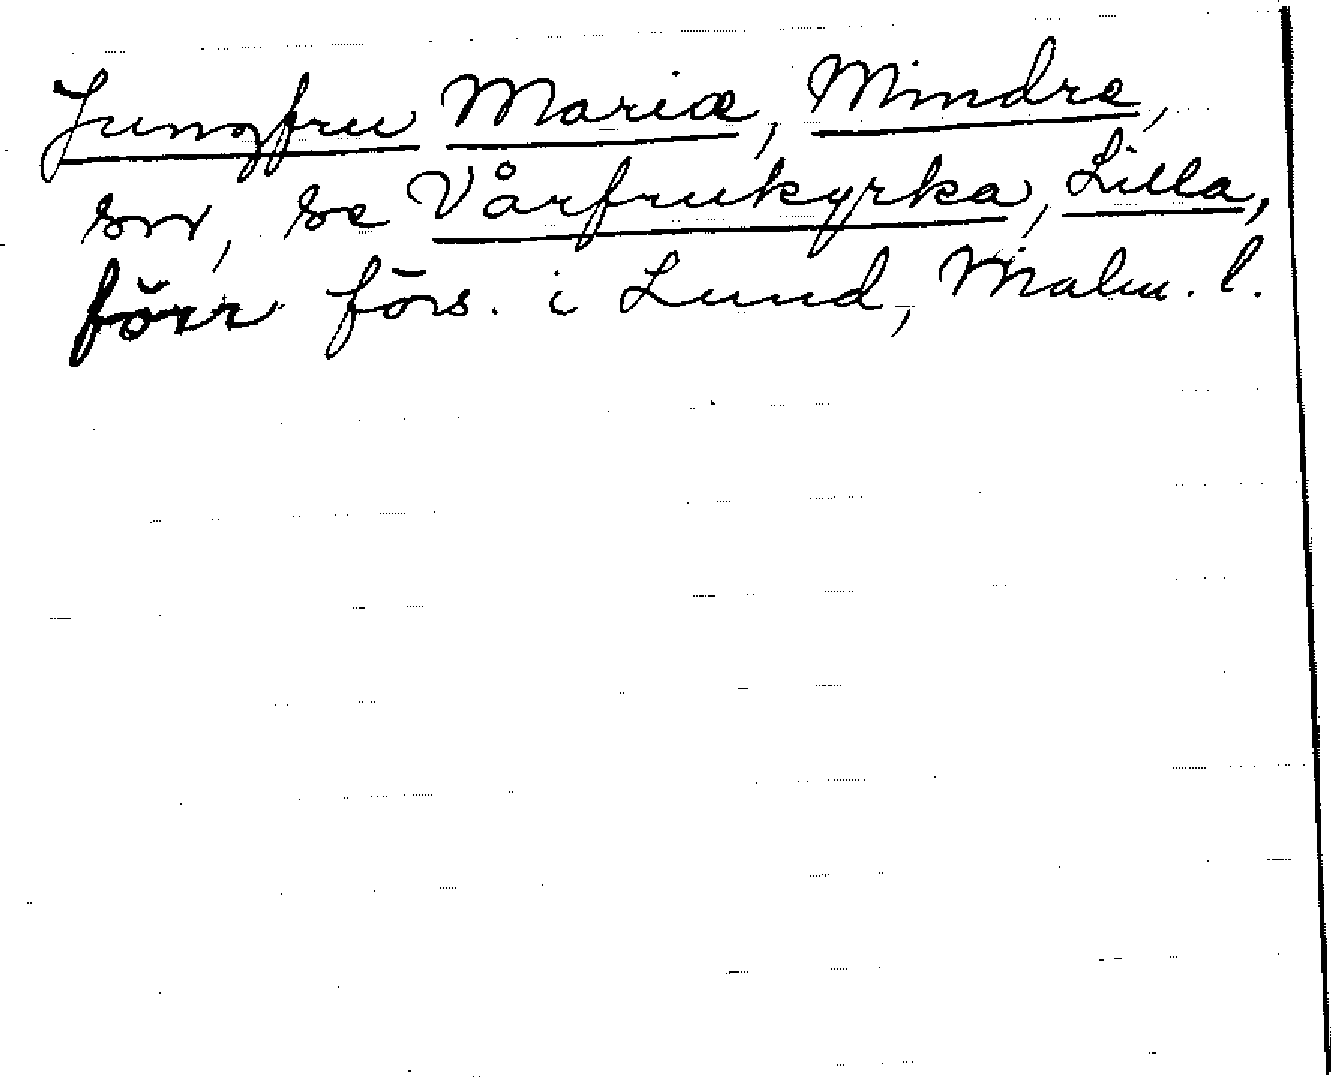 Jungfru Mariæ, Mindre,
sn, se Vårfrukyrka, Lilla,
förr förs. i Lund, Malm. l.